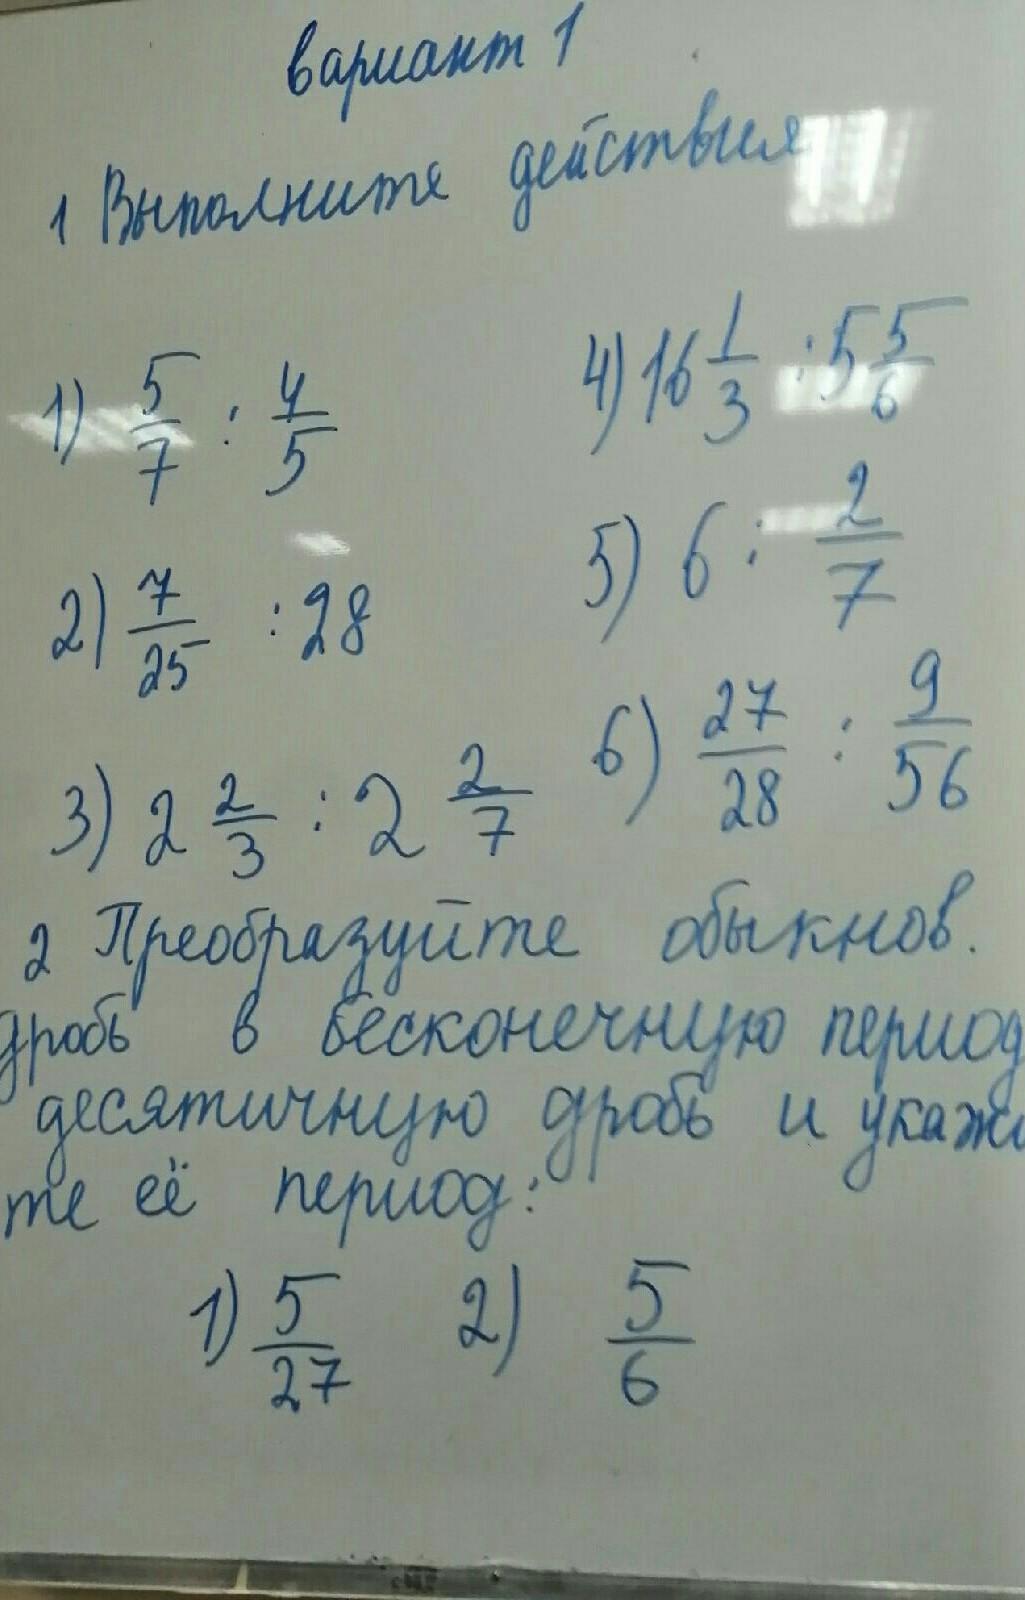 вариант 1
1 Выполните действия
1) 5/7 : 4/5
2) 7/25 : 28
3) 2 2/3 : 2 2/7
4) 16 1/3 : 5 5/6
5) 6 : 2/7
6) 27/28 : 9/56
2 Преобразуйте обыкнов.
дробь в бесконечную период
десятичную дробь и укажи
те её период:
1) 5/27 2) 5/6